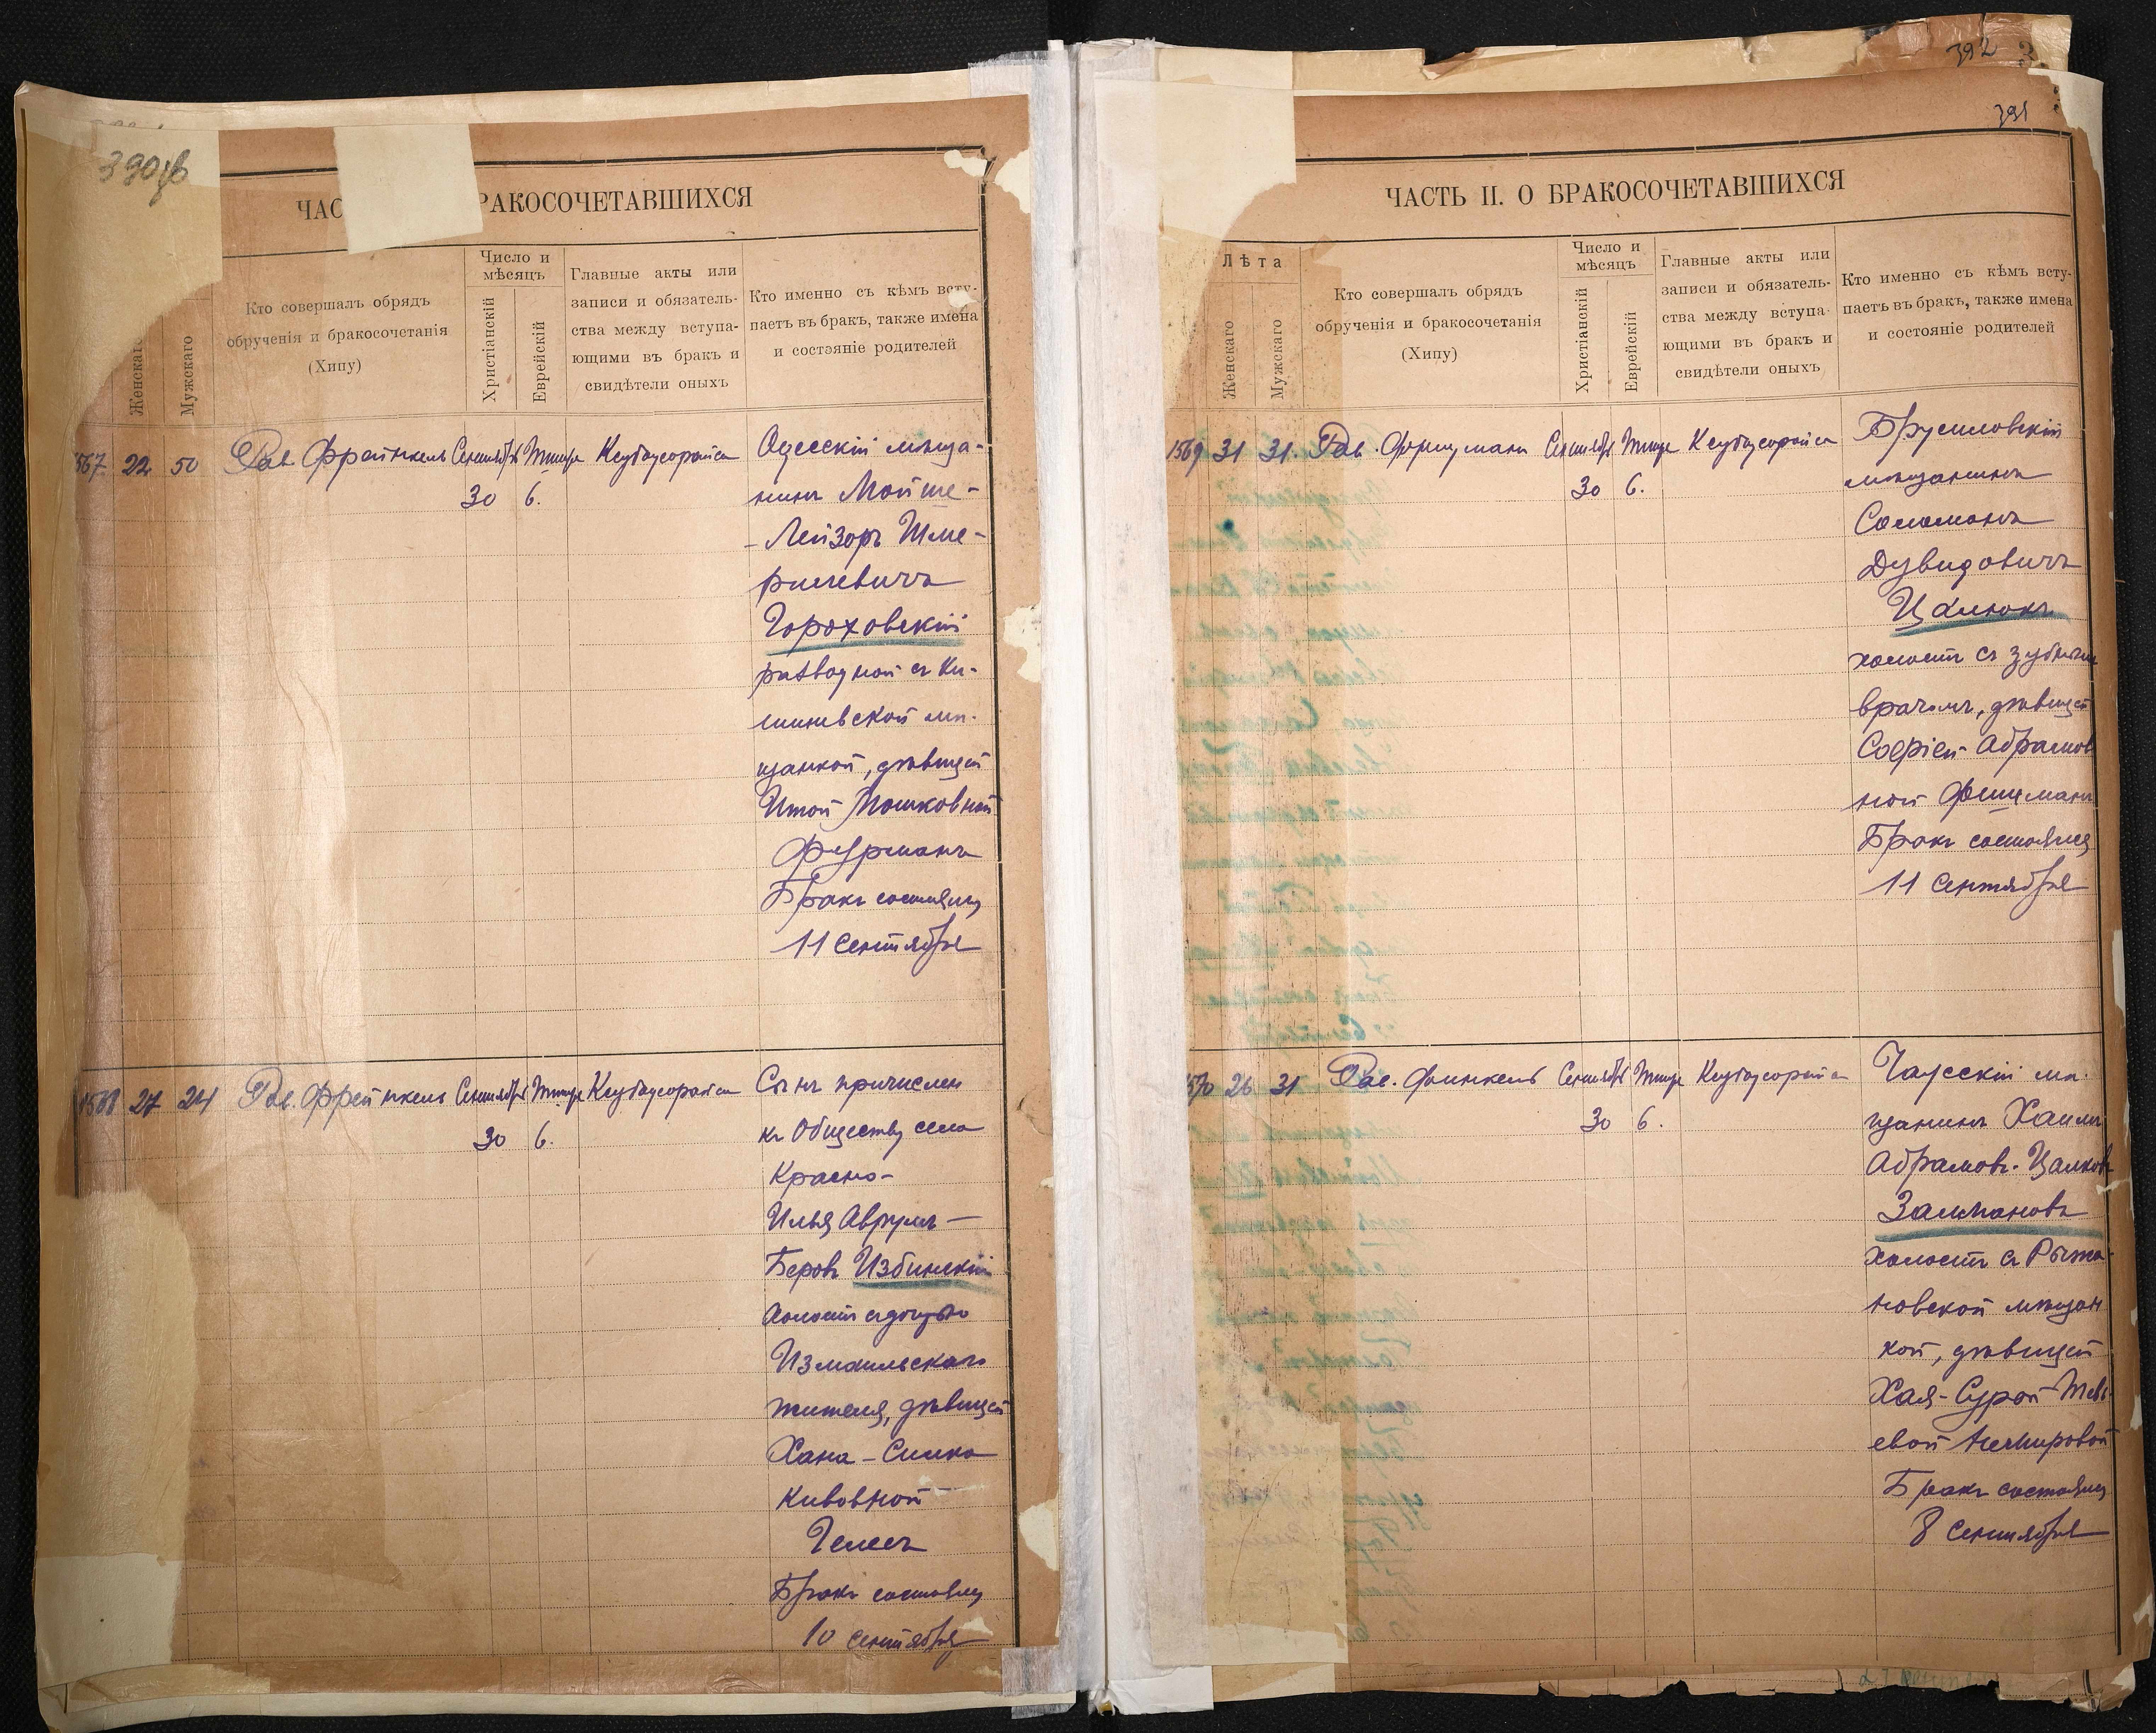 390об
ЧАС РАКОСОЧЕТАВШИХСЯ
Женскаго
Мужскаго
Кто совершалъ обрядъ
обрученія и бракосочетанія
(Хипу)
Число и
мѣсяцъ
Христіанскій
Еврейскій
Главные акты или
записи и обязатель-
ства между вступа-
ющими въ бракъ и
свидѣтели оныхъ
Кто именно съ кѣмъ всту-
паетъ въ бракъ, также имена
и состояніе родителей
1567 22 50 Рав. Фрейнкель Сентября Тишре Ксубаусорайса
30 6.
Одесскій мѣща-
нинъ Мойше-
-Лейзоръ Шме-
рилевичъ
Гороховскій
разводной съ Ки-
шиневской мѣ-
щанкой, дѣвицей
Итой Мошковной
Фурманъ
Бракъ состоялся
11 Сентября
1568 27 24 Рав. Фрейнкель Сентября Тишре Ксубаусорайса
30 6.
Сынъ причислен
къ Обществу села
Красно-
Илья Аврумъ-
Беровъ Избинскій
холостъ съ дочерью
Измаильскаго
жителя, дѣвицей
Хана-Симка
Кивовной
Гелесъ
Бракъ состоялся
10 сентября
392
391
ЧАСТЬ II. О БРАКОСОЧЕТАВШИХСЯ
Лѣта
Женскаго
Мужскаго
Кто совершалъ обрядъ
обрученія и бракосочетанія
(Хипу)
Число и
мѣсяцъ
Христіанскій
Еврейскій
Главные акты или
записи и обязатель-
ства между вступа-
ющими въ бракъ и
свидѣтели оныхъ
Кто именно съ кѣмъ всту-
паетъ въ бракъ, также имена
и состояніе родителей
1569 31 31. Рав. Сентября Тишре Ксубаусорайса
30 6.
Брусиловскій
мѣщанинъ
Соломонъ
Дувидовичъ
Цалюкъ
холостъ съ зубнымъ
врачомъ, дѣвицей
Софіей Абрамов
ной Фишманъ
Бракъ состоялся
11 Сентября
1570 26 31 Рав. Финкель Сентября Тишре Ксубаусорайса
30 6.
Чаусскій мѣ-
щанинъ Хаимъ
Абрамовъ-Цалковъ
Залмановъ
холостъ съ Рыжа-
новской мѣщан
кой, дѣвицей
Хая-Сурой Тевь-
евой Немировой
Бракъ состоялся
8 Сентября